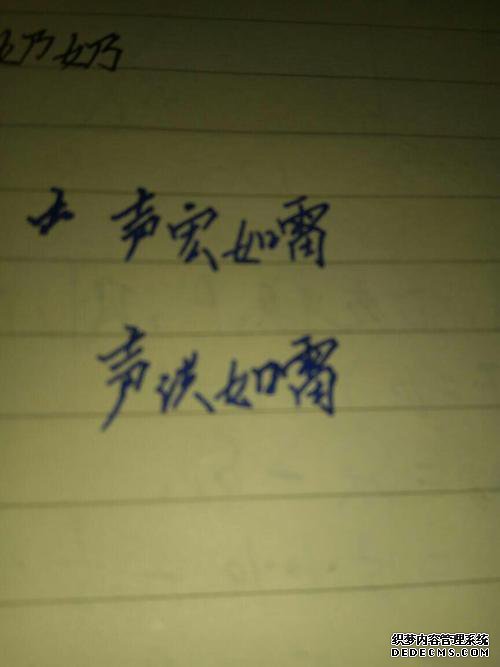 奶奶
声宏如雷
声洪如雷
织梦内容管理系统
DEDECMS.COM